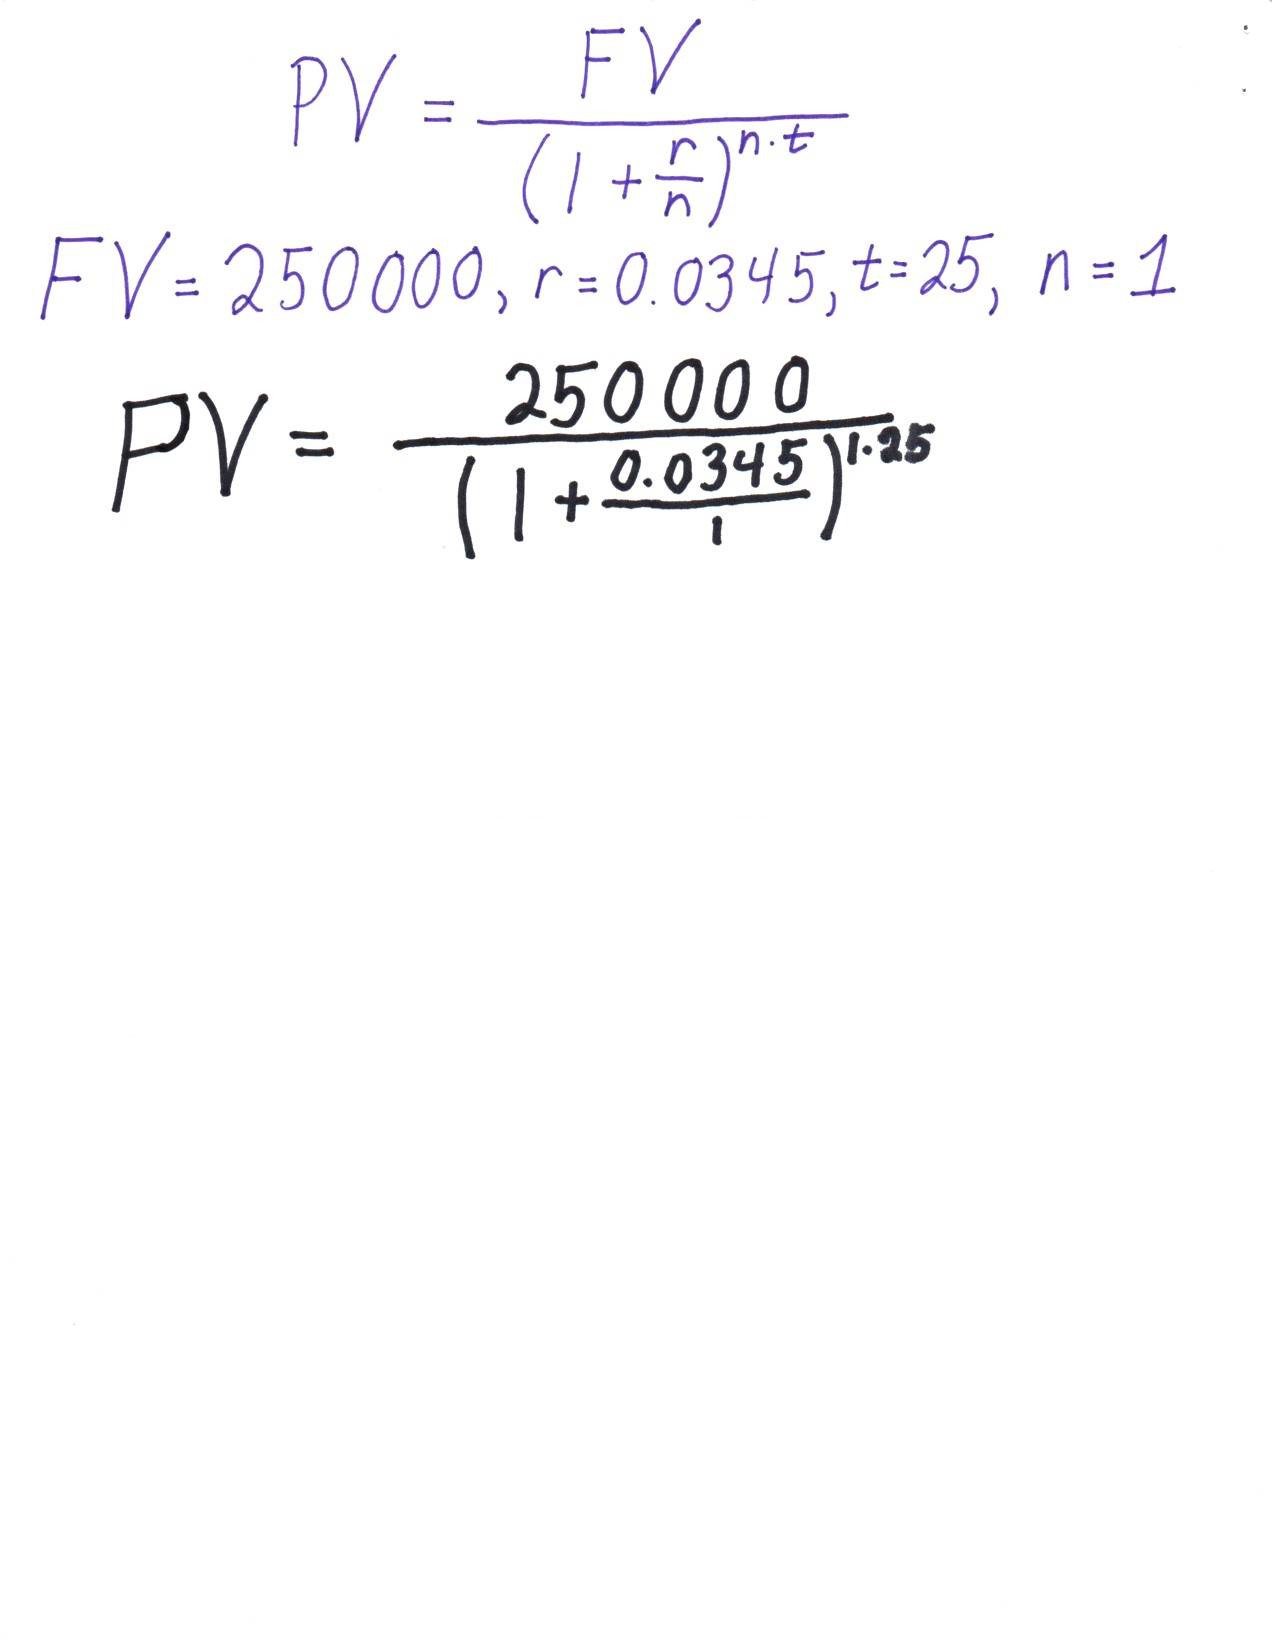 PV = FV / (1 + r/n)^n·t
FV = 250000, r = 0.0345, t = 25, n = 1
PV = 250000 / (1 + 0.0345/1)^1·25